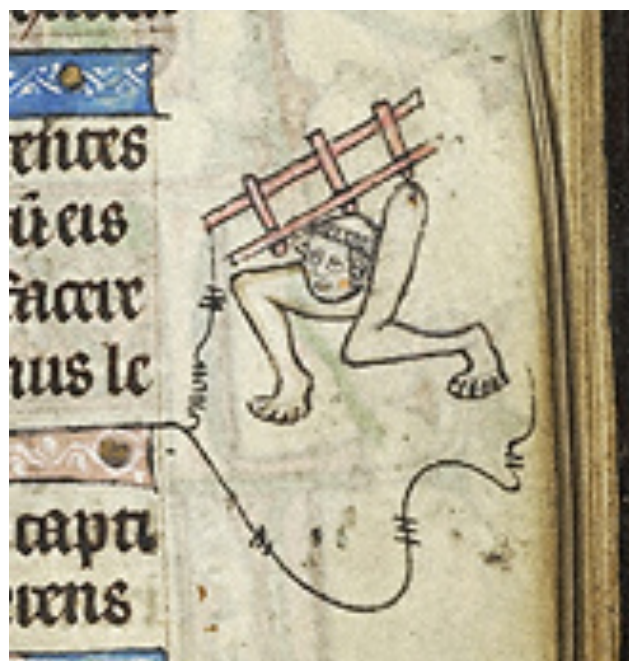 entes
ũ eis
facere
nus le
capti
rens